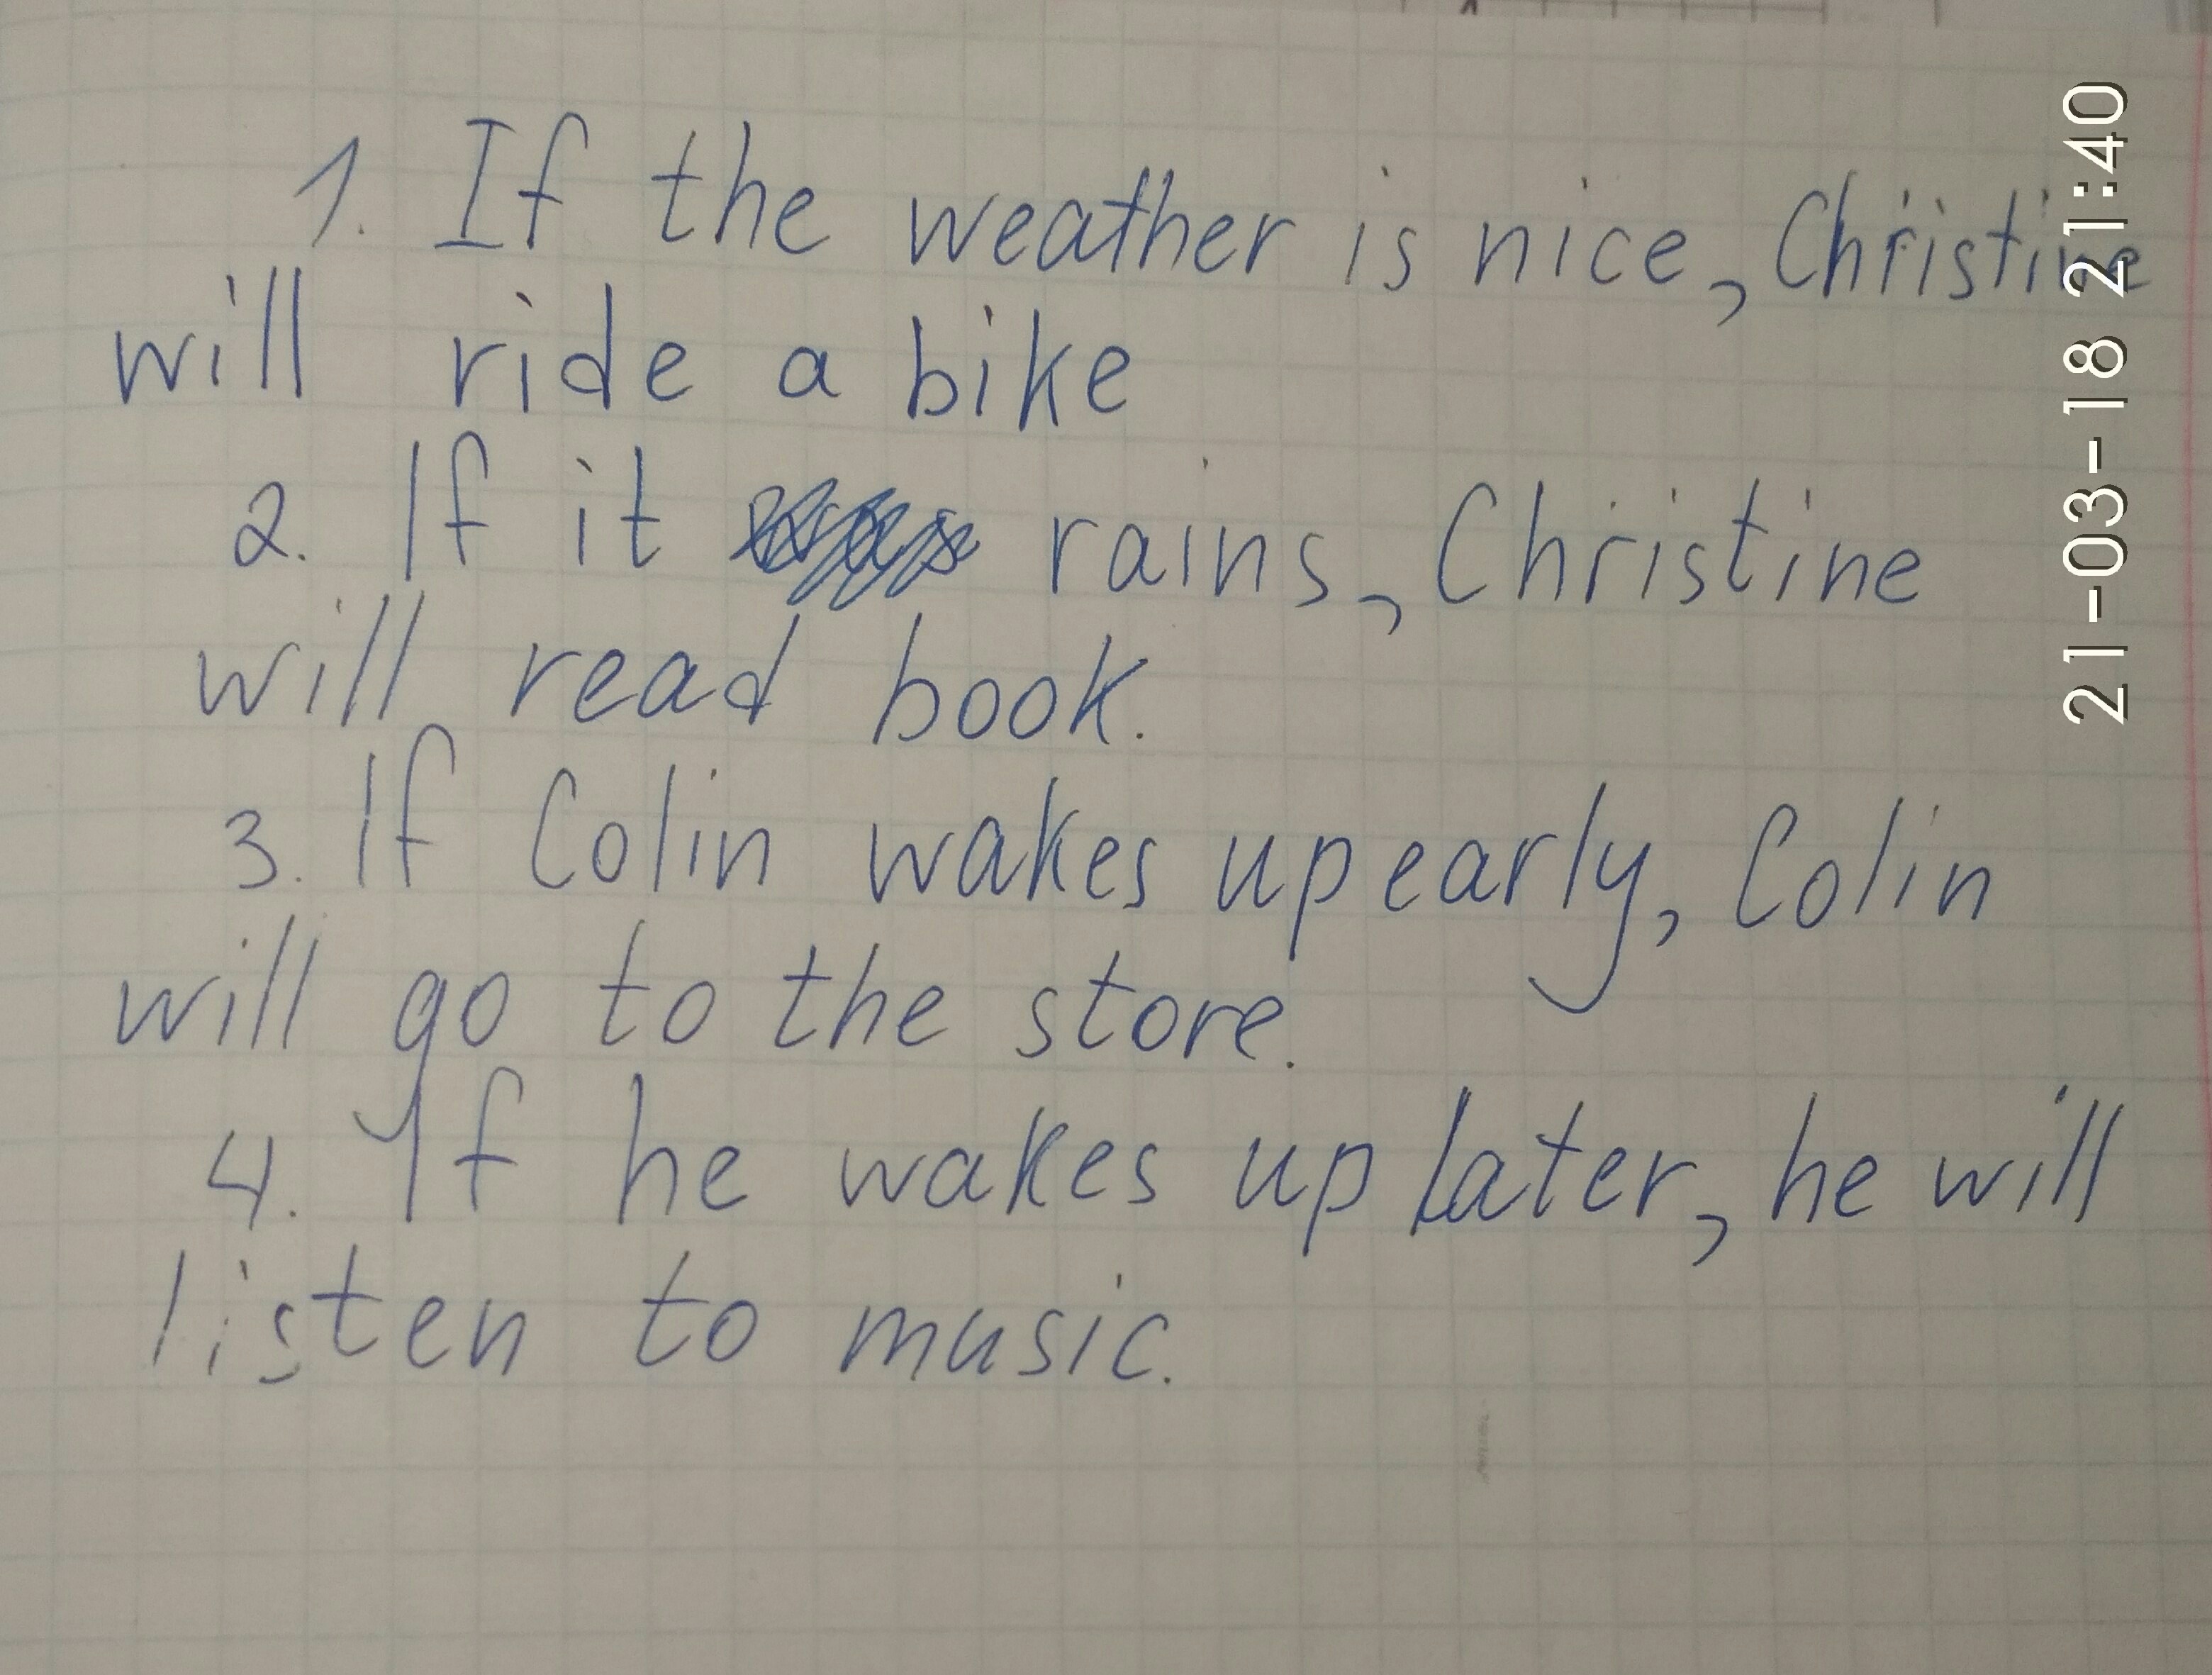 1. If the weather is nice, Christine
will ride a bike
2. If it rains, Christine
will read book.
3. If Colin wakes up early, Colin
will go to the store.
4. If he wakes up later, he will
listen to music.
21-03-18 21:40